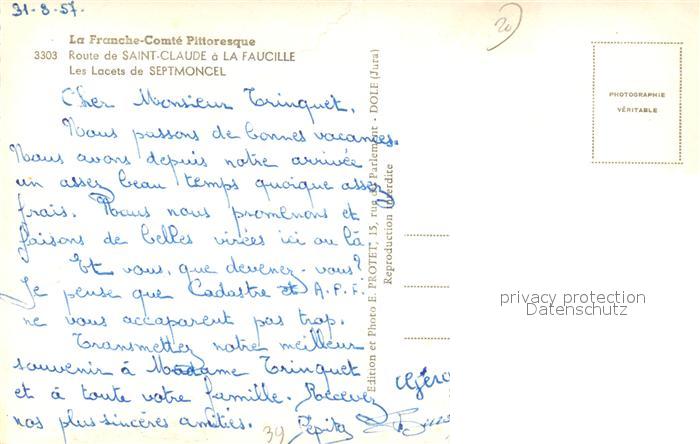 31-8-57.
La Franche-Comté Pittoresque
3303 Route de SAINT-CLAUDE à LA FAUCILLE
Les Lacets de SEPTMONCEL
Cher Monsieur Trinquet,
Nous passons de bonnes vacances.
Nous avons depuis notre arrivée
un assez beau temps quoique assez
frais. Nous nous promenons et
faisons de belles virées ici ou là
Et vous, que devenez-vous?
Je pense que Cadastre et A.P.F.
ne vous accaparent pas trop.
Transmettez notre meilleur
souvenir à Madame Trinquet
et à toute votre famille. Recevez
nos plus sincères amitiés.
Pepita
39
20
Edition et Photo E. PROTET, 15, rue du Parlement - DOLE (Jura)
Reproduction interdite
PHOTOGRAPHIE
VÉRITABLE
privacy protection
Datenschutz